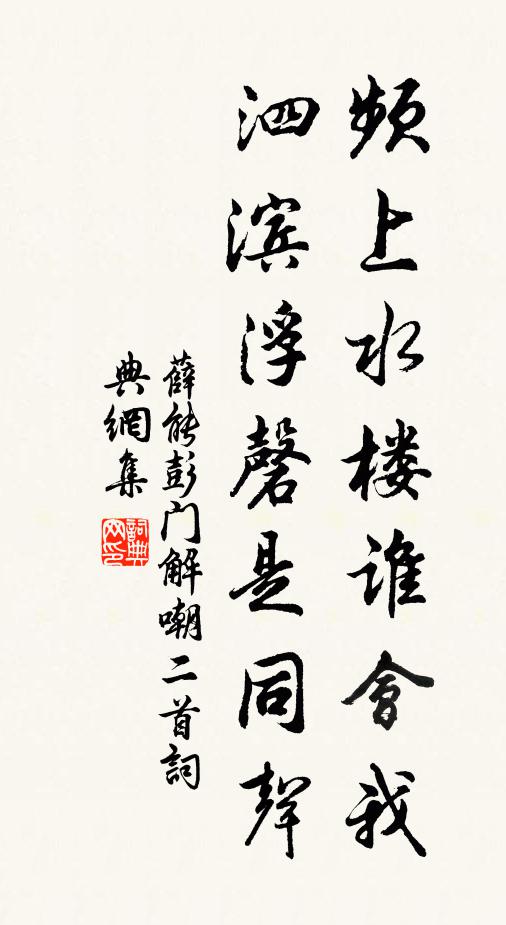 频上水楼谁會我
泗滨浮磬是同聲
薛能彭门解嘲二首詞
典網集
詞典網印